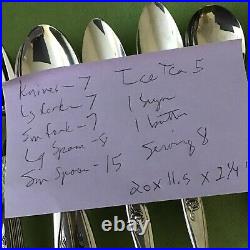 Knives - 7
Lg Forks - 7
Sm Fork - 7
Lg Spoon - 8
Sm Spoon - 15
Ice Tea 5
1 Sugar
1 butter
Serving 8
20 x 11.5 x 2 1/4